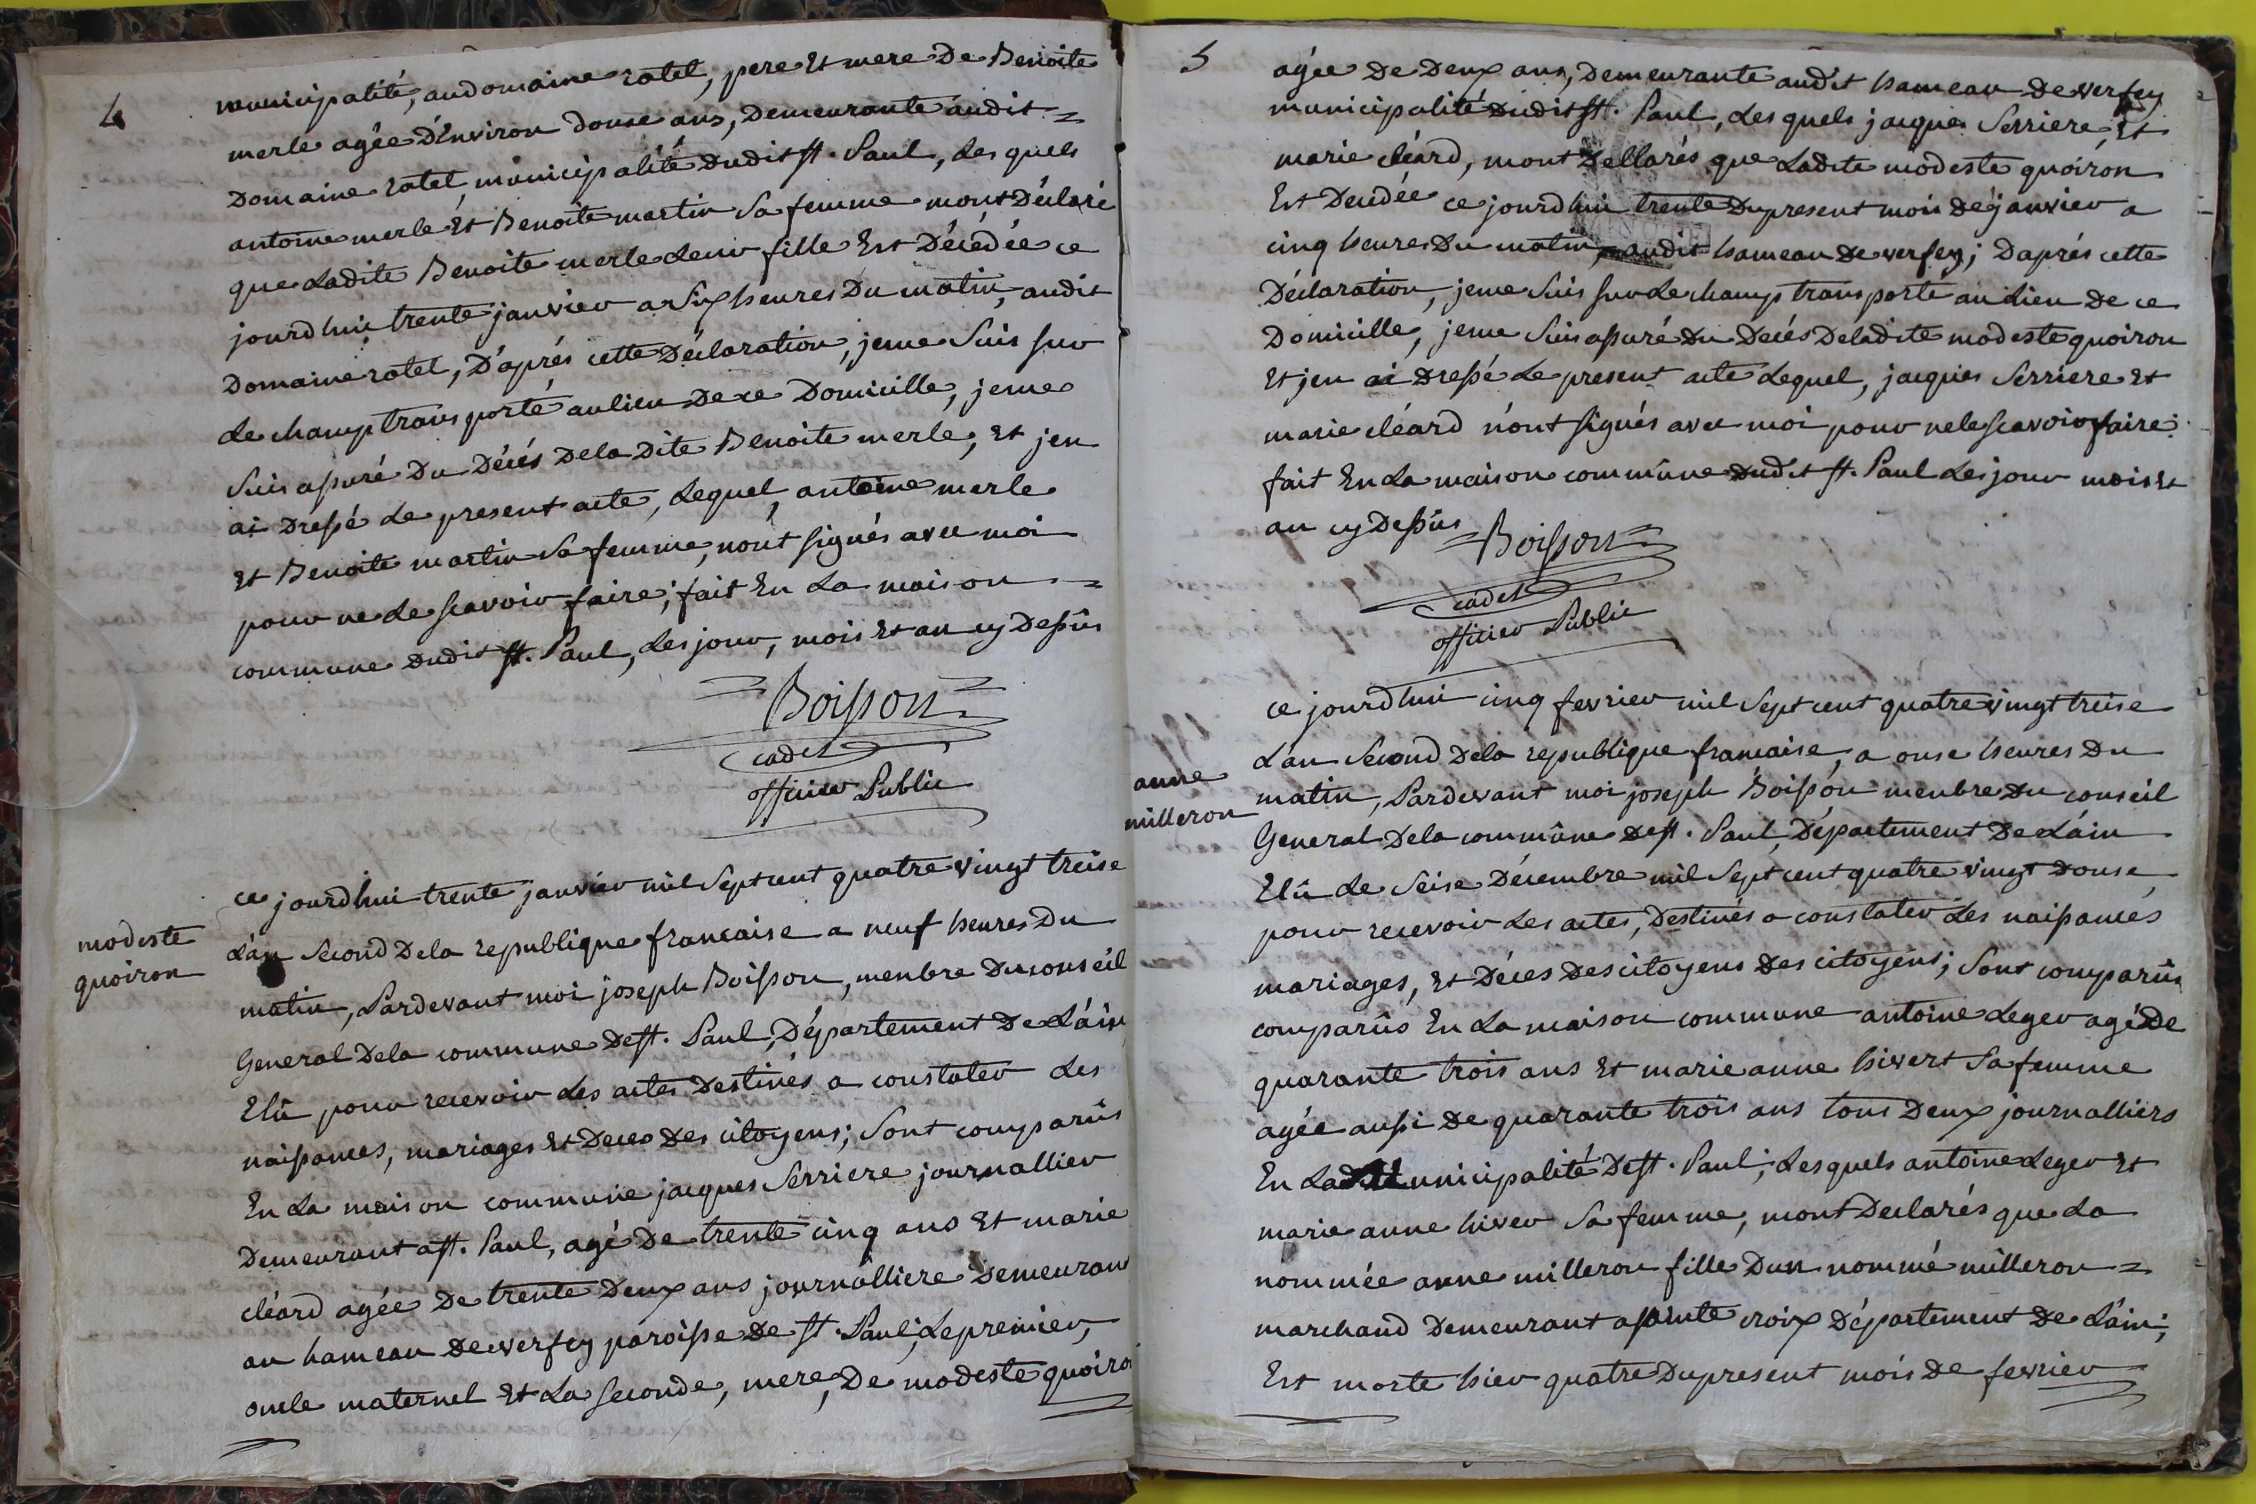 4
municipalité, audomaine ratel, pere Et mere De Benoite
merle agée d'Environ douse ans, Demeurante audit =
Domaine ratel, municipalité dudit st. Paul, Les quels
antoine merle Et Benoite martin Sa femme mont Déclaré
que Ladite Benoite merle Leur fille Est Décédée ce
jourdhui trente janvier a Six heures Du matin, audit
Domaine ratel, D'aprés cette Déclaration, jeme Suis sur
Le champ transporté aulieu De ce Domicille, jeme
Suis assuré Du Décés Dela Dite Benoite merle, Et jen
ai Dressé Le present acte, Lequel antoine merle
Et Benoite martin Sa femme, nont signés avec moi
pour ne Le scavoir faire; fait En La maison =
commune dudit st. Paul, Les jour, mois Et an cy Dessûs
Boisson
cadet
officier Public
modeste
quoiron
ce jourdhui trente janvier mil Sept cent quatre vingt treise
L'an Second Dela republique francaise a neuf heures Du
matin, Pardevant moi joseph Boisson, menbre Du conseil
General Dela commune De st. Paul, Département De L'áin
Elû pour recevoir Les actes Destinés a constater Les
naissances, mariages Et Deces Des citoyens; Sont comparûs
En La maison commune jacques Serriere journallier
Demeurant a st. Paul, agé De trente cinq ans Et marie
cléard agée De trente Deux ans journalliere Demeurant
au hameau De verfey paroisse De st. Paul; Le premier,
oncle maternel Et La Seconde, mere, De modeste quoiron
5
agée De Deux ans, Demeurante audit hameau De verfey
municipalité Dudit st. Paul, Les quels jacques Serriere, Et
marie cléard, mont Dellarés que Ladite modeste quoiron
Est Decedée ce jourdhui trente Du present mois De janvier a
cinq heures Du matin, audit hameau De verfey; Daprés cette
Déclaration, jeme Suis sur Le champ transporté au Lieu De ce
Domicille, jeme Suis assuré Du Decés Deladite modeste quoiron
Et jen ai Dressé Le present acte Lequel, jacques Serriere Et
marie cléard n'ont signés avec moi pour ne le scavoir faire:
fait En La maison commûne dudit st. Paul Les jour mois Et
an cy Dessûs
Boisson
cadet
officier Public
anne
milleron
ce jourdhui cinq fevrier mil Sept cent quatre vingt treise
L'an Second Dela republique francaise, a onse heures Du
matin, Pardevant moi joseph Boisson menbre Du conseil
General Dela commûne De st. Paul, Département De L'áin
Elû Le Seise Décembre mil Sept cent quatre vingt Douse,
pour recevoir Les actes, Destinés a constater Les naissances
mariages, Et Déces Des citoyens Des citoyens; Sont comparûs
comparûs En La maison commune antoine Leger agé De
quarante trois ans Et marie anne hivert Sa femme
agée aussi De quarante trois ans tous Deux journalliers
En Ladite municipalité De st. Paul; Lesquels antoine Leger Et
marie anne hiver Sa femme, mont Declarés que La
nommée anne milleron fille Dun nommé milleron =
marchand Demeurant a sainte croix Département De L'áin;
Est morte hier quatre Du present mois De fevrier